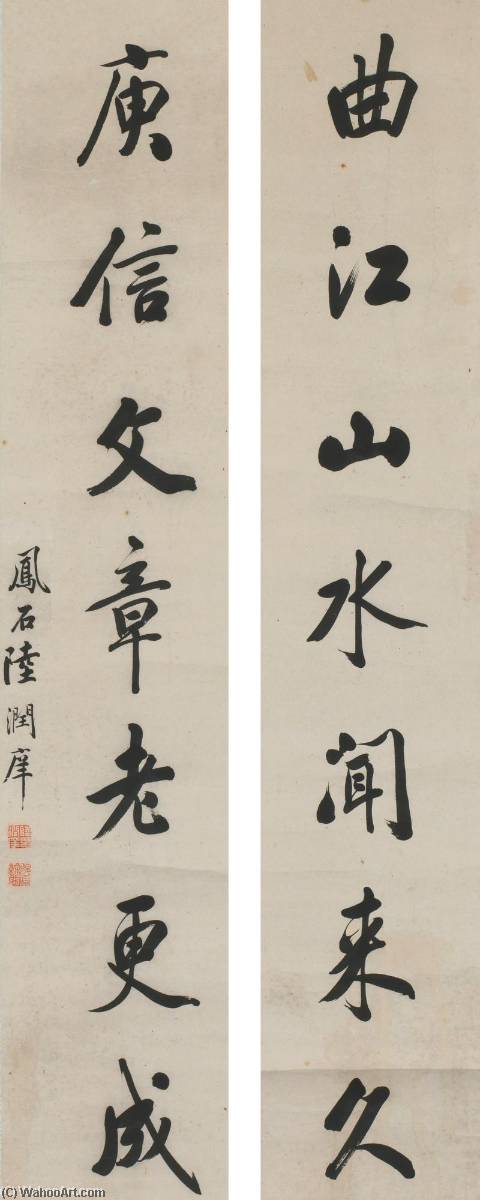 曲江山水闻来久
庾信文章老更成
鳳石陸潤庠
(C) WahooArt.com